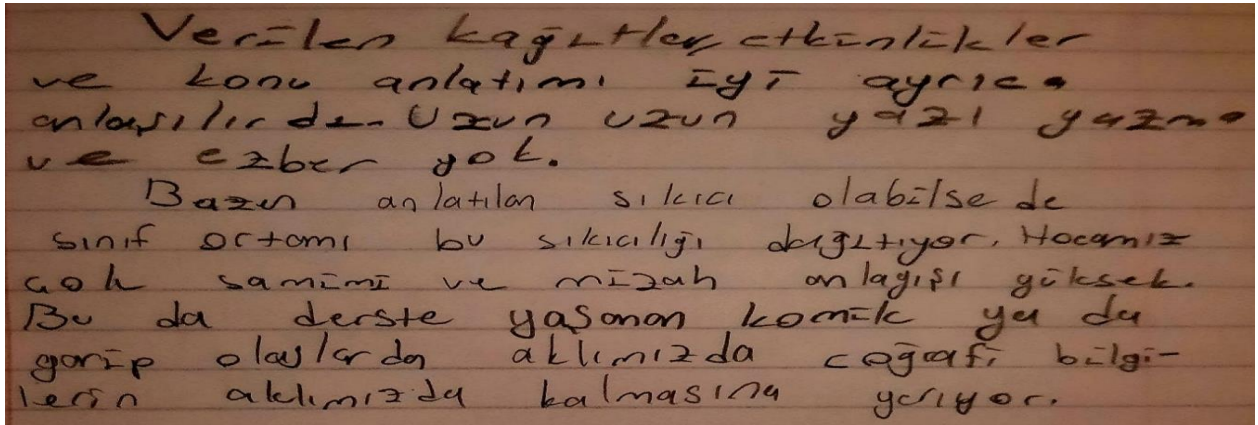 Verilen kağıtlar, etkinlikler
ve konu anlatımı iyi ayrıca
anlaşılırdı. Uzun uzun yazı yazma
ve ezber yok.
Bazen anlatılan sıkıcı olabilse de
sınıf ortamı bu sıkıcılığı dağıtıyor. Hocamız
çok samimi ve mizah anlayışı yüksek.
Bu da derste yaşanan komik ya da
garip olaylarda aklımızda coğrafi bilgi-
lerin aklımızda kalmasına yarıyor.